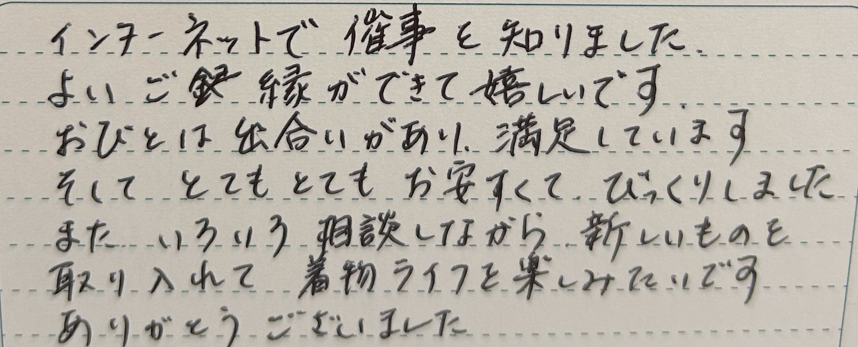 インターネットで 催事を知りました.
よい ご 縁ができて嬉しいです.
おびとは出合いがあり、満足しています
そして とてもとても お安すくて、びっくりしました
また いろいろ 相談しながら、新しいものを
取り入れて 着物ライフを楽しみたいです
ありがとうございました